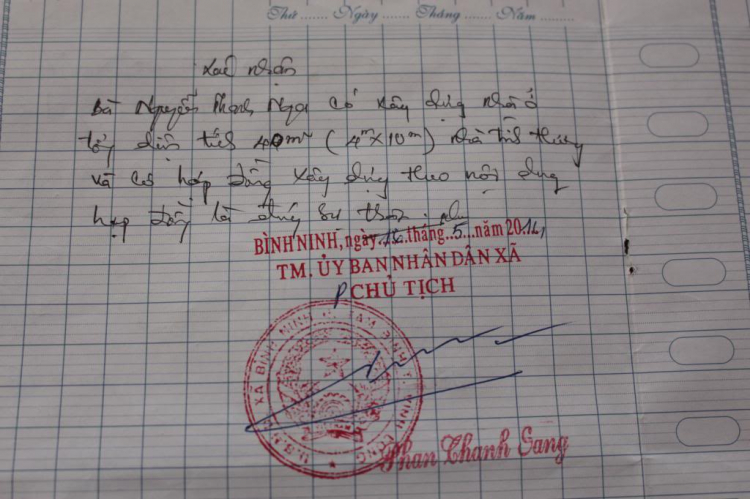 Thứ ...... Ngày ...... Tháng ...... Năm ......
Xác nhận
Bà Nguyễn Thanh Nga có xây dựng nhà ở
tổng diện tích 40m² (4m x 10m) nhà tình thương
và có hợp đồng xây dựng theo nội dung
hợp đồng là đúng sự thật.
BÌNH NINH, ngày tháng 5 năm 2014
TM. ỦY BAN NHÂN DÂN XÃ
P CHỦ TỊCH
U.B.N.D XÃ BÌNH NINH
Phan Thanh Sang